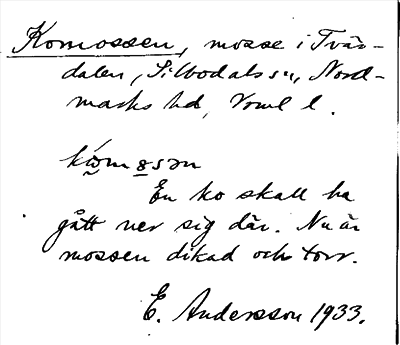 Komossen, mosse i Tvär-
dalen, Silbodals sn, Nord-
marks hd, Vrml l.
kọ́mə̣sən
En ko skall ha
gått ner sig där. Nu är
mossen dikad och torr.
E. Andersson 1933.